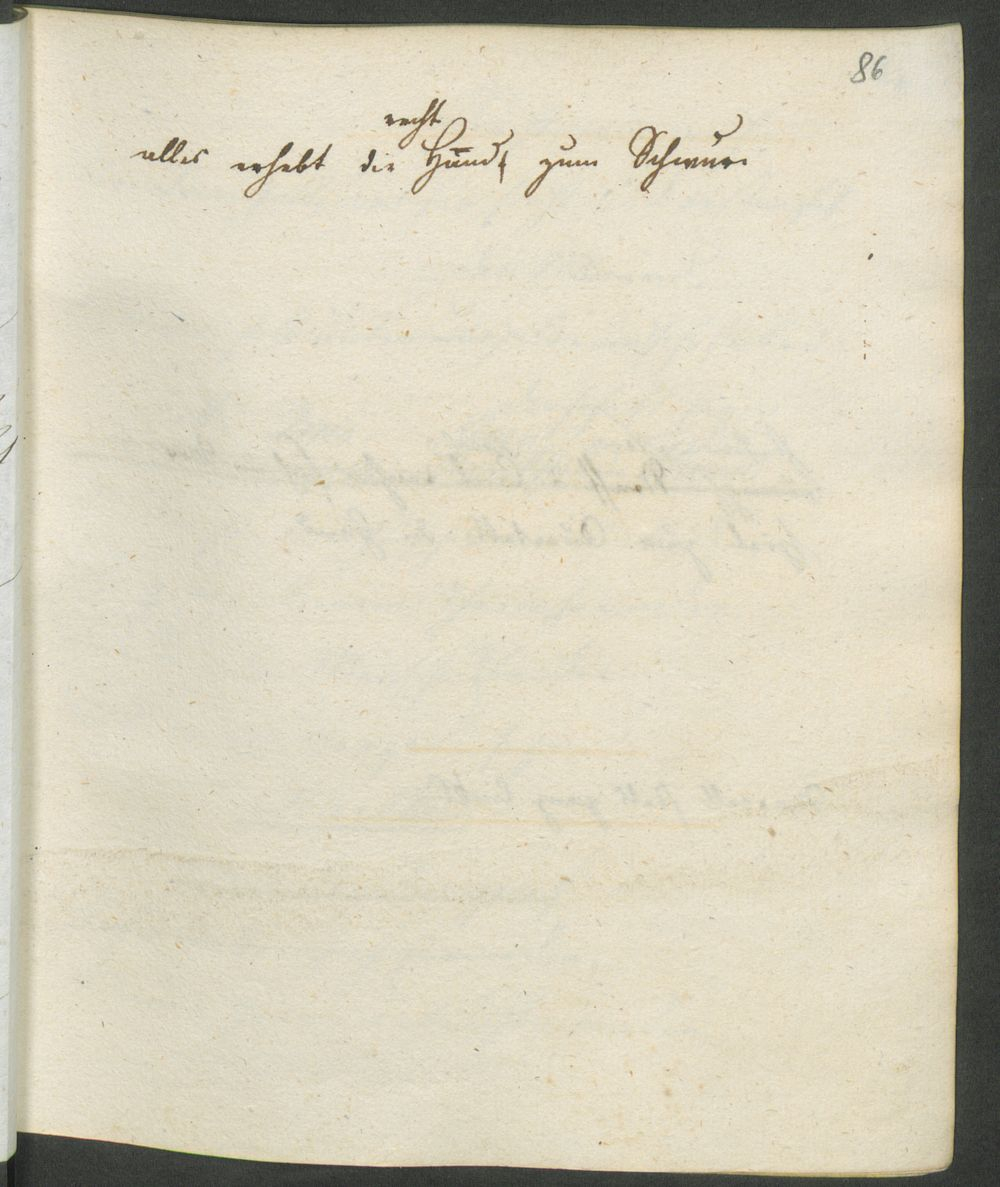 86
recht
alles erhebt die Händ zum Schwur.